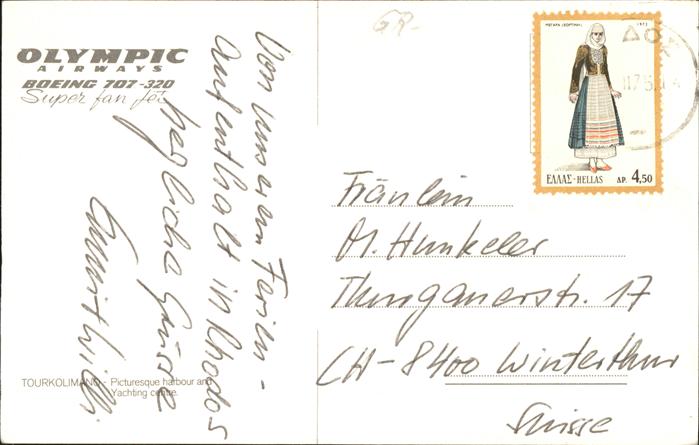 OLYMPIC
AIRWAYS
BOEING 707-320
Super fan Jets
Von unseren Ferien-
aufenthalt in Rhodos
herzliche Grüsse
TOURKOLIMANO - Picturesque harbour and
Yachting centre.
GR-
ΕΛΛΑΣ-HELLAS ΔΡ. 4,50
Fräulein
M. Hunkeler
Thurgauerstr. 17
CH-8400 Winterthur
Suisse